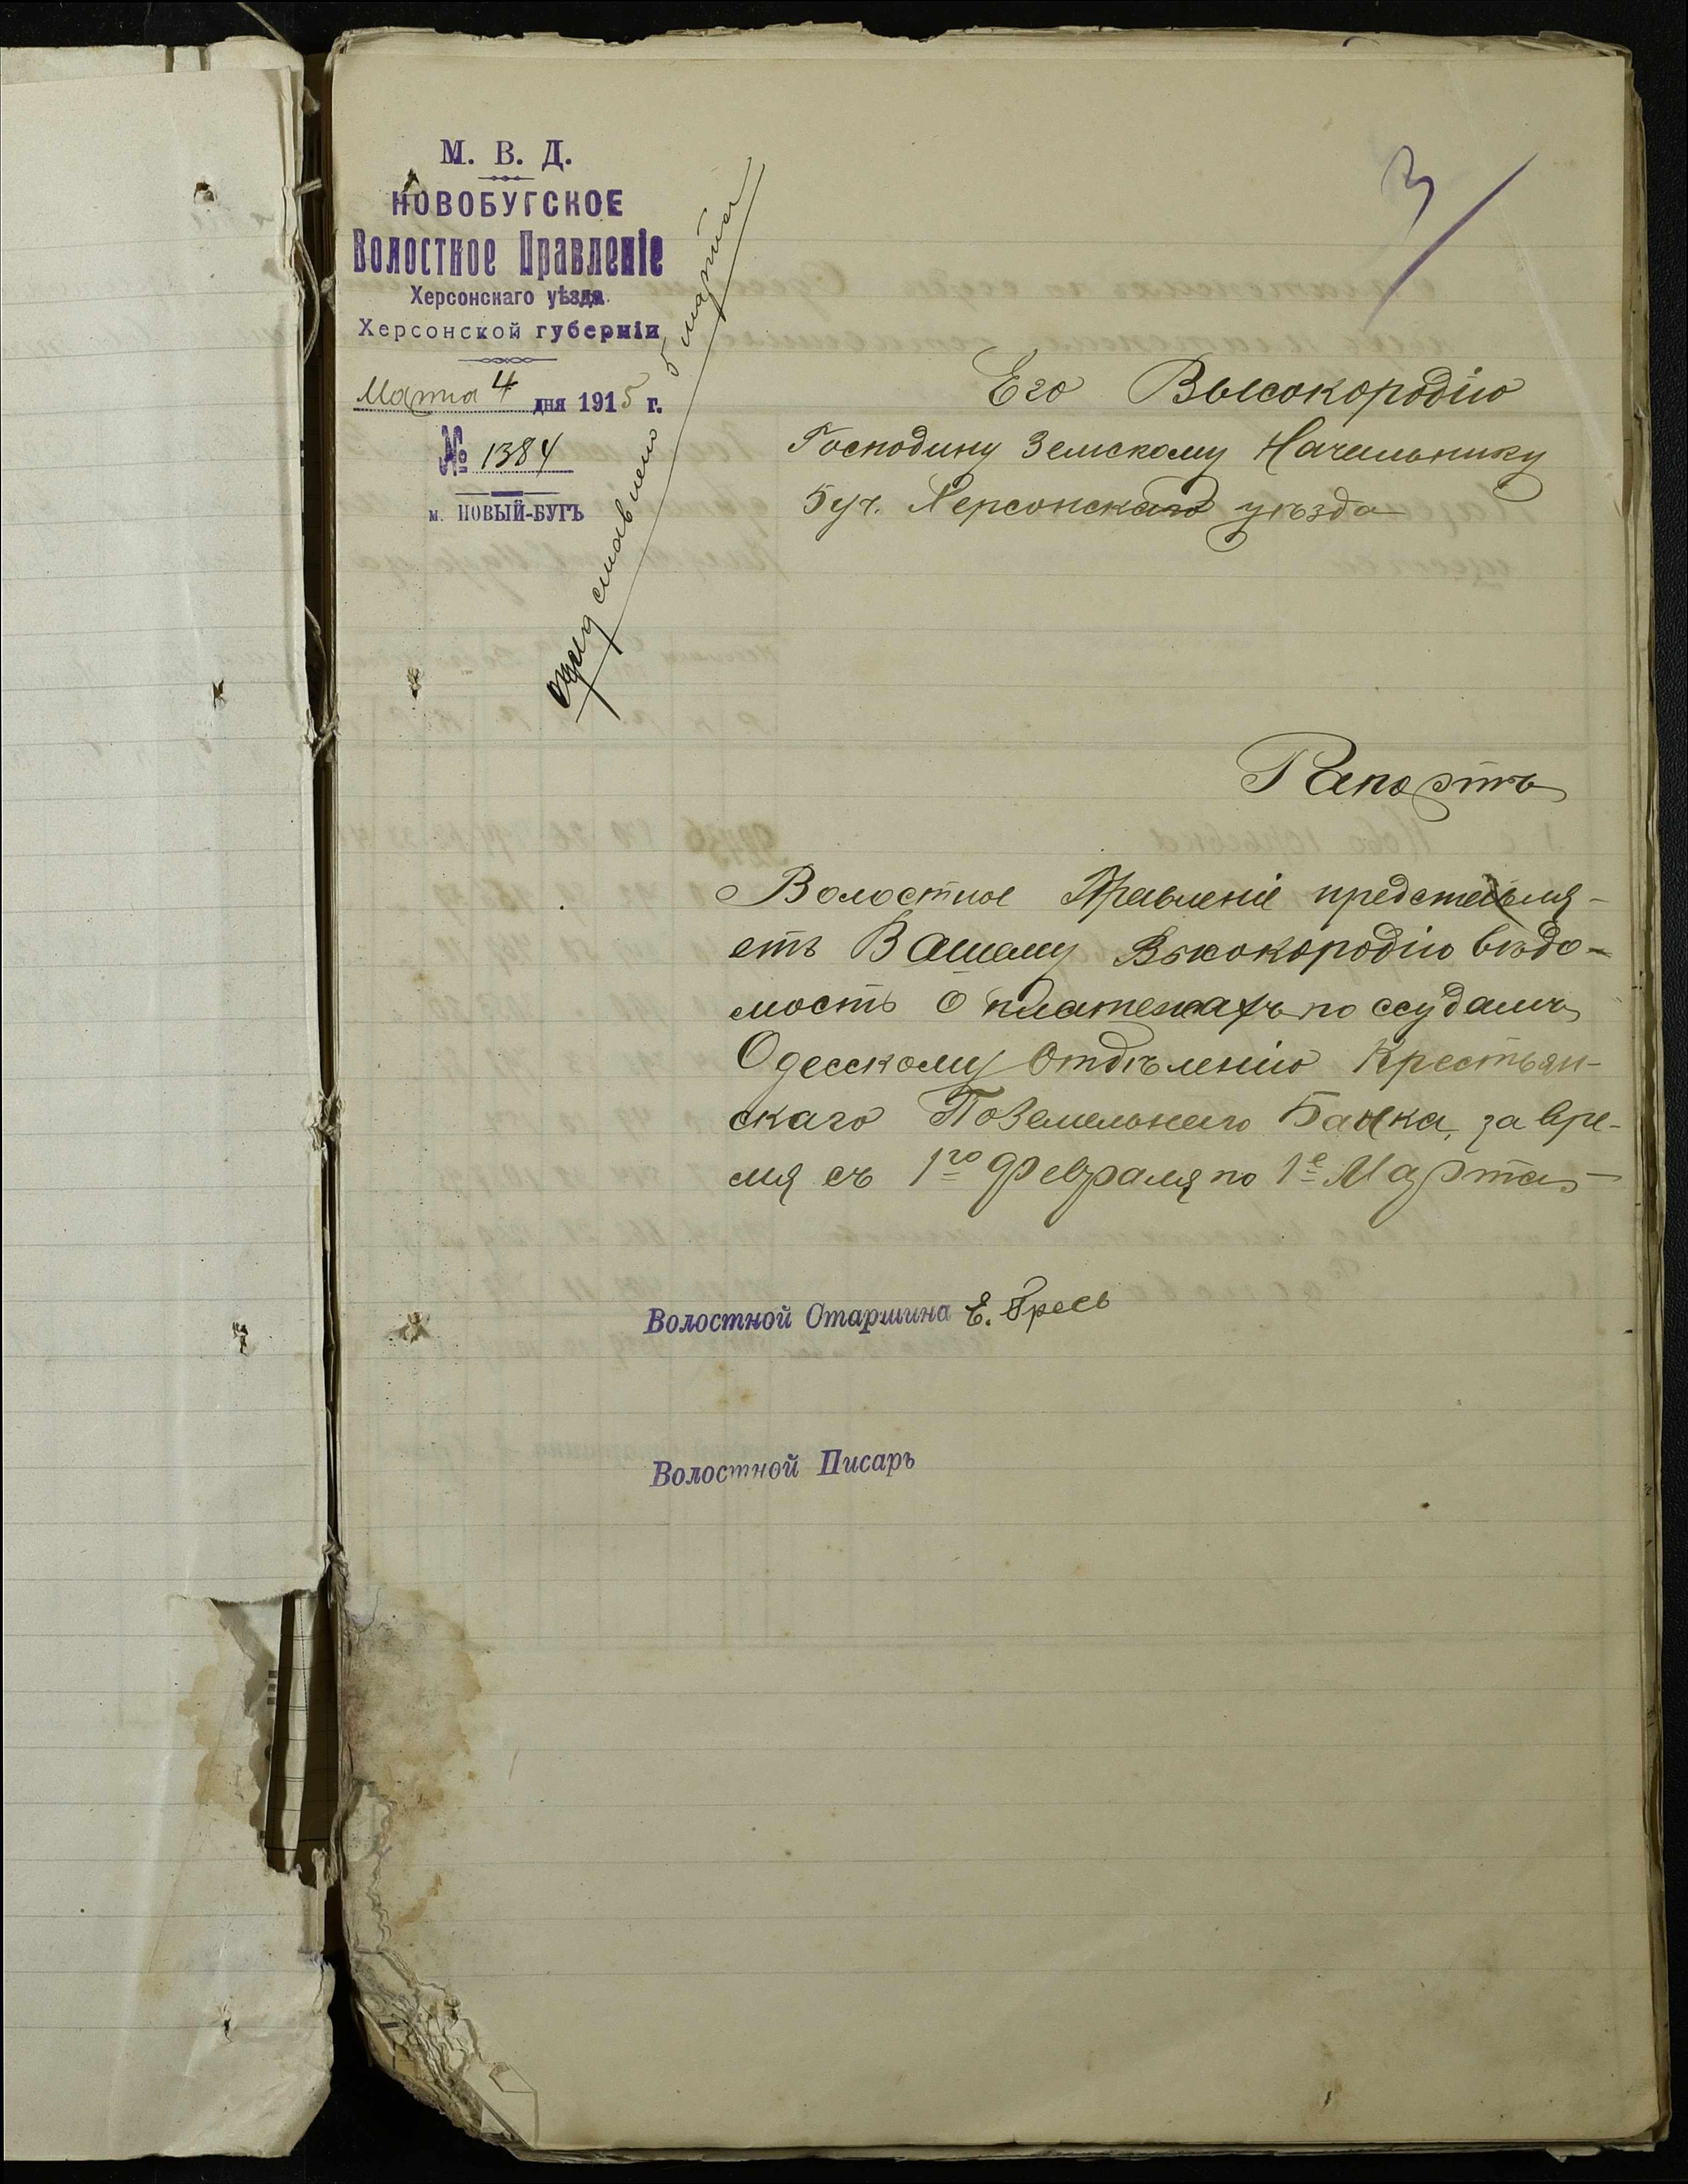 М. В. Д.
НОВОБУГСКОЕ
Волостное Правленіе
Херсонскаго уѣзда
Херсонской губерніи
Марта 4 дня 1915 г.
№ 1384
м. НОВЫЙ-БУГЪ
5 марта
3
Его Высокородію
Господину Земскому Начальнику
5 уч. Херсонскаго уѣзда
Рапортъ
Волостное Правленіе представля-
етъ Вашему Высокородію вѣдо-
мость о платежахъ по ссудамъ
Одесскому Отдѣленію Крестьян-
скаго Поземельнаго Банка, за вре-
мя съ 1го Февраля по 1е Марта
Волостной Старшина Е. Гресь
Волостной Писарь